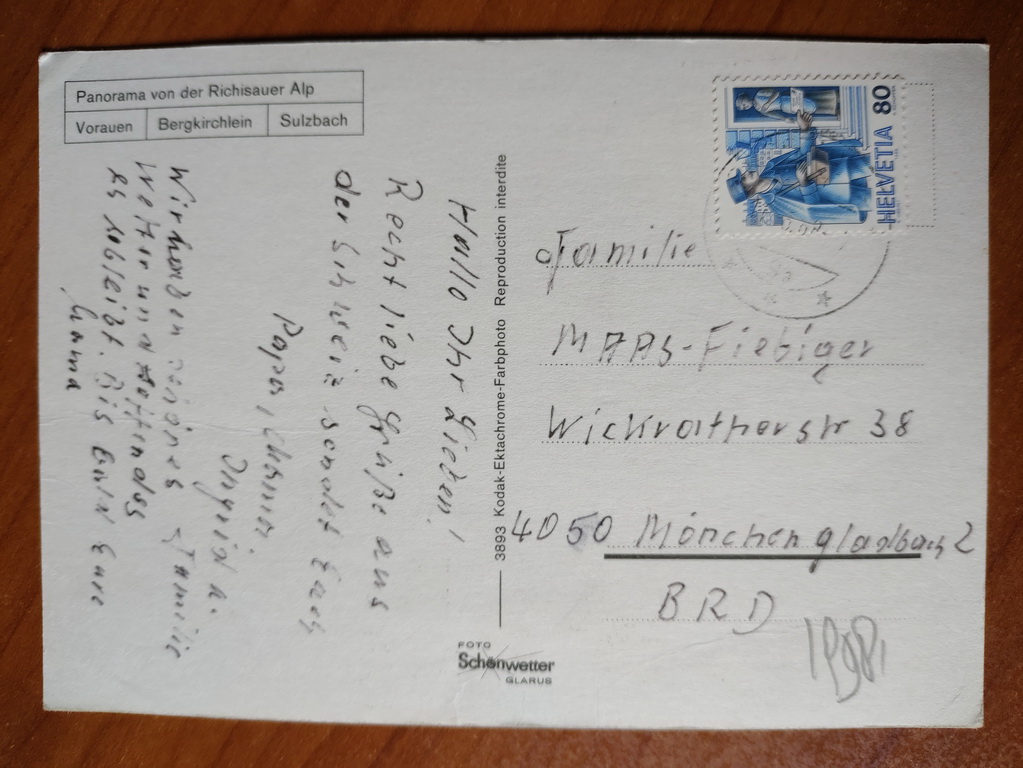 Panorama von der Richisauer Alp
Vorauen Bergkirchlein Sulzbach
Hallo Ihr Lieben!
Recht liebe Grüße aus
der Schweiz sendet Euch
Papa,
Ingrid u.
Familie
Wir haben
Wetter und hoffen das
es so bleibt. Bis bald Eure
3893 Kodak-Ektachrome-Farbphoto Reproduction interdite
FOTO
Schönwetter
GLARUS
HELVETIA 80
Familie
MAAS-Fiebiger
Wickratherstr 38
4050 Mönchengladbach 2
BRD